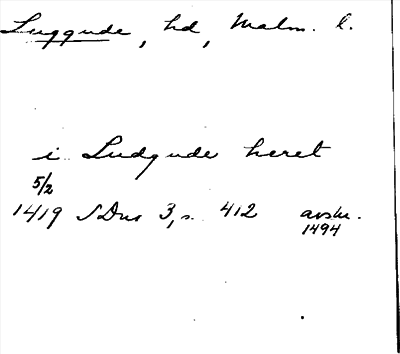 Luggude, hd, Malm. l.
i Ludgude heret
5/2
1419 SDns 3, s. 412 avskr.
1494